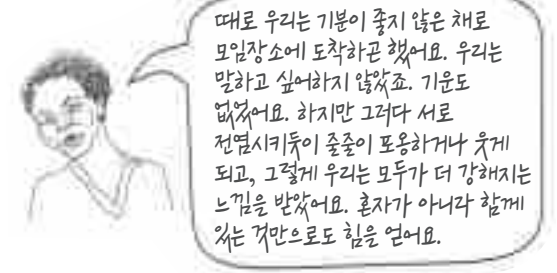 때로 우리는 기분이 좋지 않은 채로
모임장소에 도착하곤 했어요. 우리는
말하고 싶어하지 않았죠. 기운도
없었어요. 하지만 그러다 서로
전염시키듯이 줄줄이 포옹하거나 웃게
되고, 그렇게 우리는 모두가 더 강해지는
느낌을 받았어요. 혼자가 아니라 함께
있는 것만으로도 힘을 얻어요.